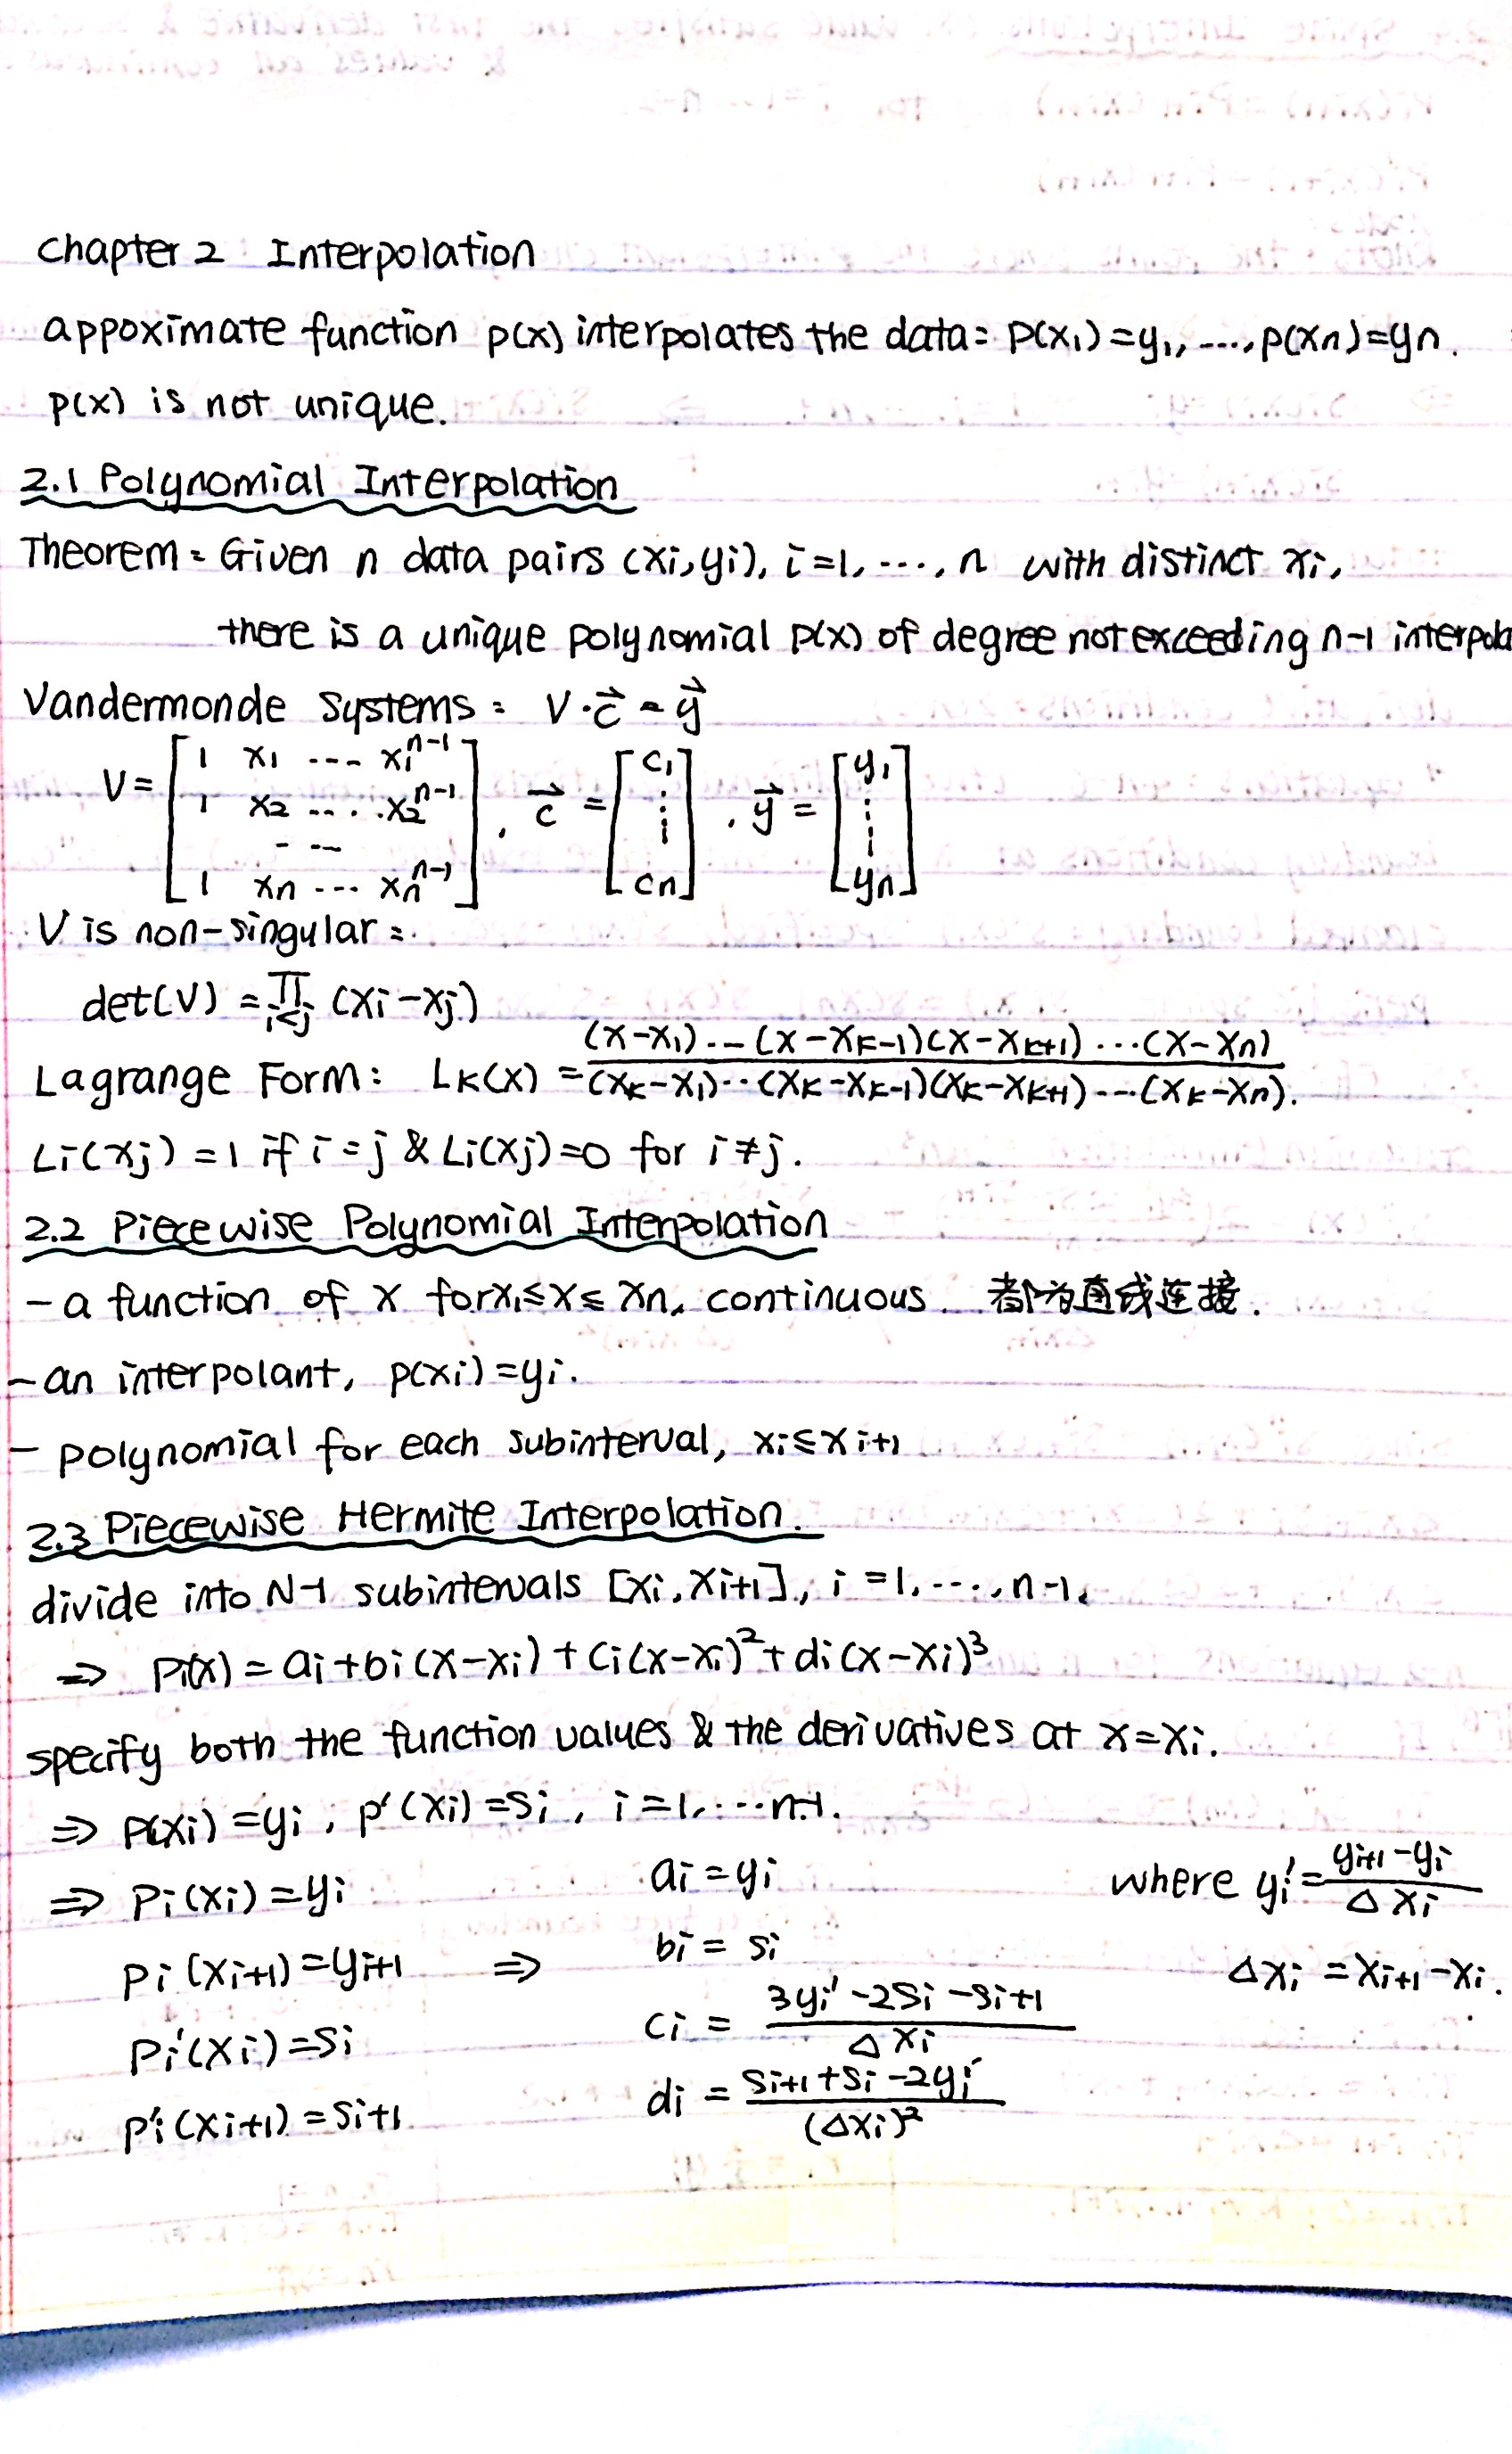 Chapter 2 Interpolation
appoximate function p(x) interpolates the data: P(x₁)=y₁, ..., p(xn)=yn.
p(x) is not unique.
2.1 Polynomial Interpolation
Theorem: Given n data pairs (xi,yi), i=1, ..., n with distinct xi,
there is a unique polynomial p(x) of degree not exceeding n-1 interpola
Vandermonde Systems: V·c⃗ = y⃗
V = [1 x₁ ... x₁ⁿ⁻¹; 1 x₂ ... x₂ⁿ⁻¹; ...; 1 xn ... xnⁿ⁻¹], c⃗ = [c₁ ⋮ cn], y⃗ = [y₁ ⋮ yn]
V is non-singular:
det(V) = ∏i<j (xi-xj)
Lagrange Form: Lk(x) = (x-x₁)...(x-xk-1)(x-xk+1)...(x-xn) / (xk-x₁)...(xk-xk-1)(xk-xk+1)...(xk-xn).
Li(xj)=1 if i=j & Li(xj)=0 for i≠j.
2.2 Piecewise Polynomial Interpolation
- a function of x for x₁≤x≤xn, continuous. 都为直线连接.
- an interpolant, p(xi)=yi.
- polynomial for each subinterval, xi≤xi+1
2.3 Piecewise Hermite Interpolation.
divide into N-1 subintervals [xi, xi+1], i=1, ..., n-1,
⇒ Pi(x) = ai+bi(x-xi)+ci(x-xi)²+di(x-xi)³
specify both the function values & the derivatives at x=xi.
⇒ p(xi)=yi, p'(xi)=si, i=1, ...n-1.
⇒ Pi(xi)=yi ai=yi where yi'=(yi+1-yi)/Δxi
Pi(xi+1)=yi+1 ⇒ bi=si Δxi=xi+1-xi.
Pi'(xi)=si ci=(3yi'-2si-si+1)/Δxi
Pi'(xi+1)=si+1. di=(si+1+si-2yi')/(Δxi)²